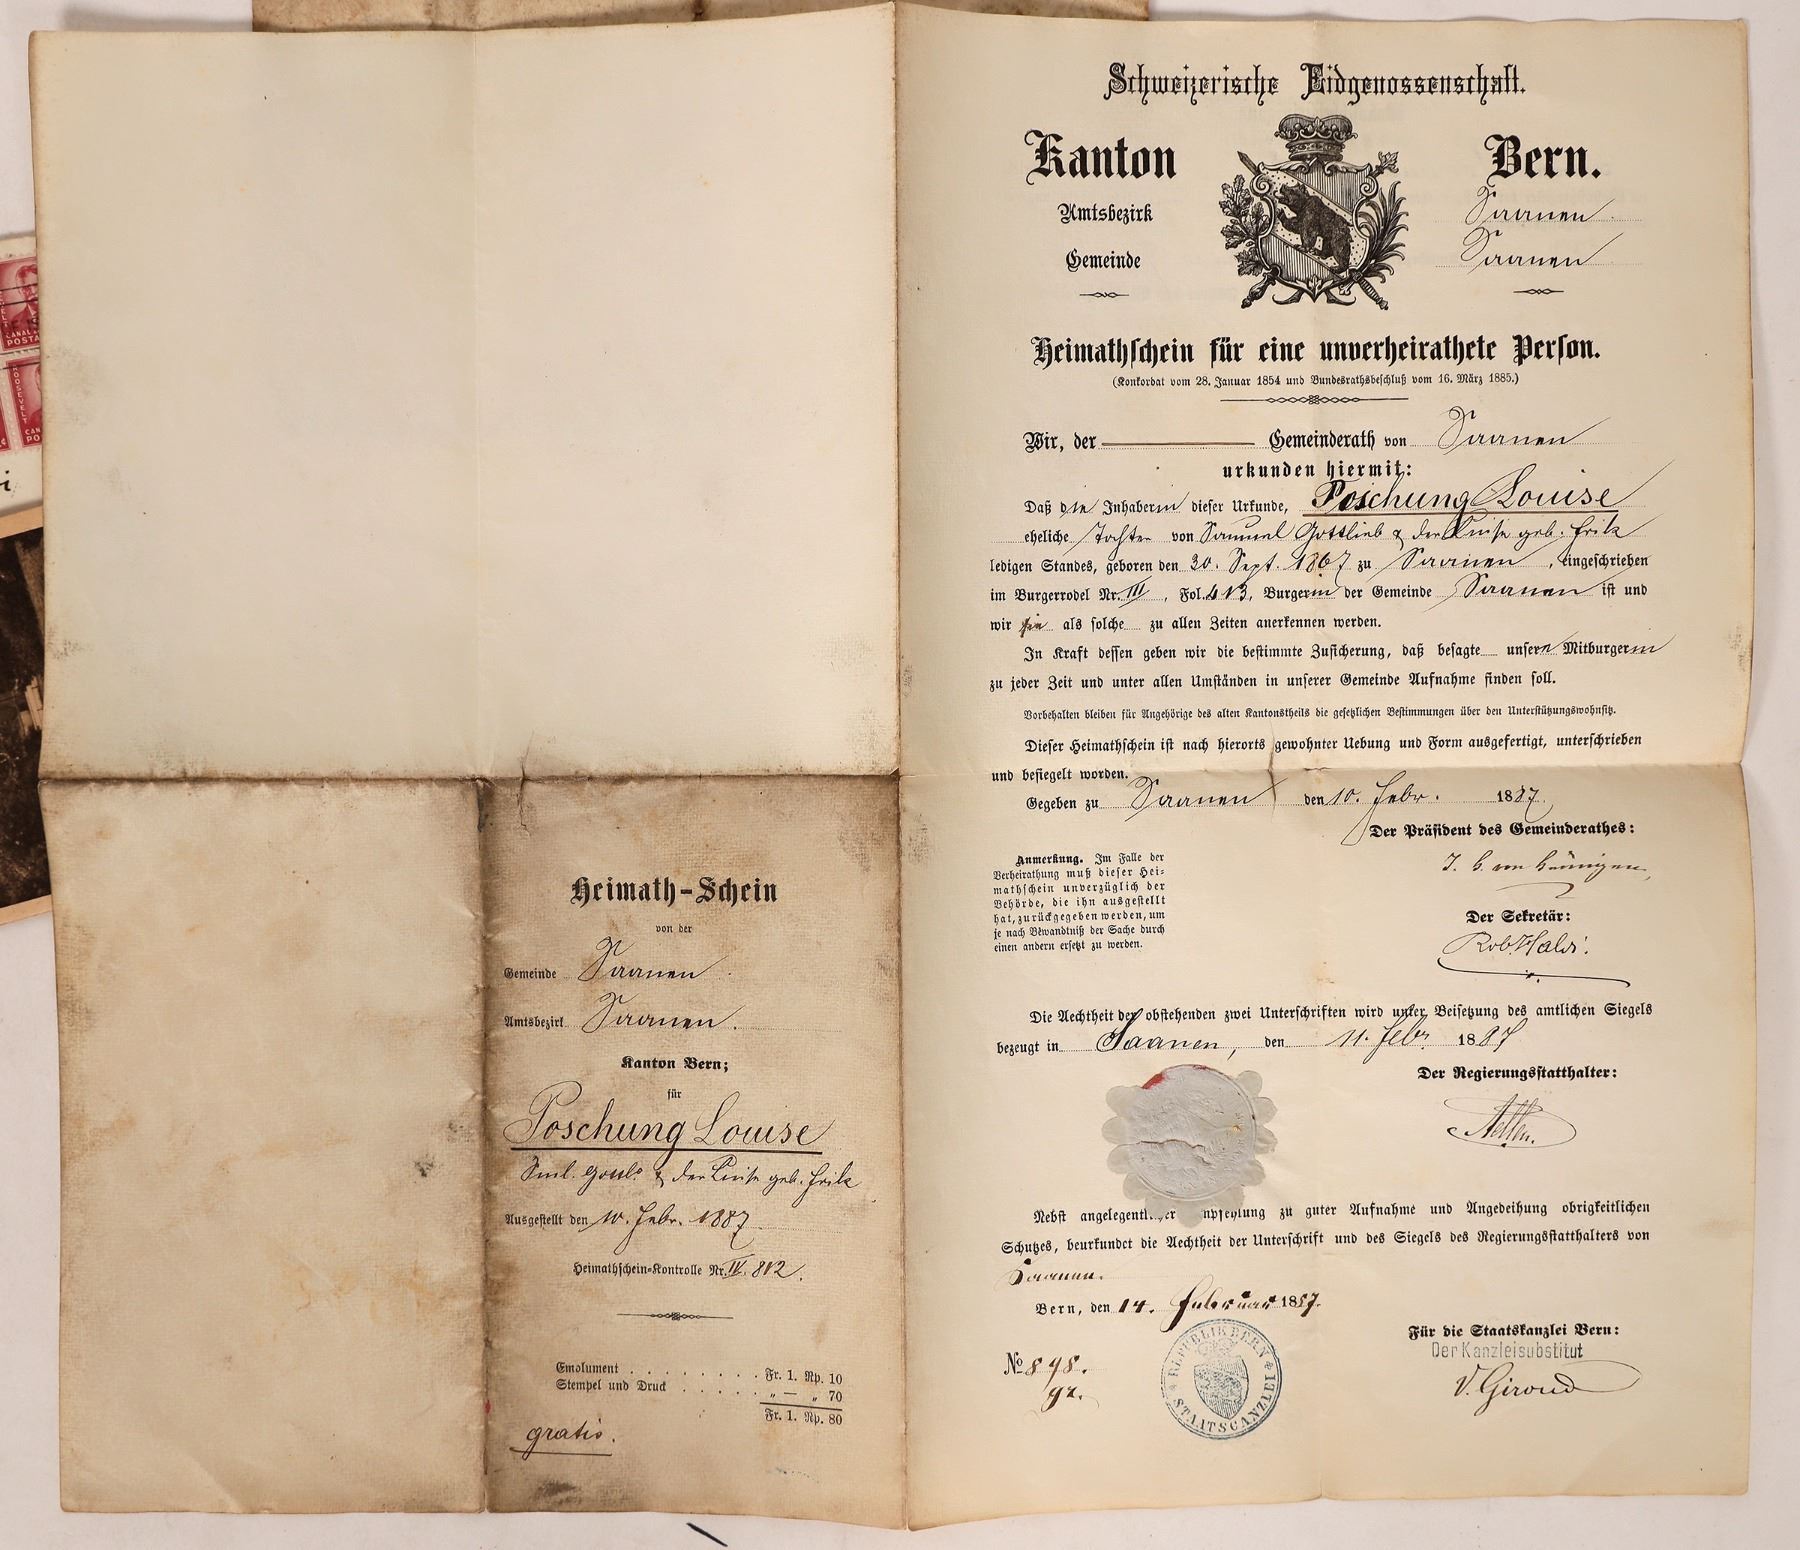 Schweizerische Eidgenossenschaft.
Kanton Bern.
Amtsbezirk Saanen
Gemeinde Saanen
Heimathschein für eine unverheirathete Person.
(Konkordat vom 28. Januar 1854 und Bundesrathsbeschluß vom 16. März 1885.)
Wir, der Gemeinderath von Saanen
urkunden hiermit:
Daß die Inhaberin dieser Urkunde, Poschung Louise
eheliche Tochter von Samuel Gottlieb & der Luise geb. Frik
ledigen Standes, geboren den 30. Sept. 1867 zu Saanen, eingeschrieben
im Burgerrodel Nr. III, Fol. 413, Burgerin der Gemeinde Saanen ist und
wir sie als solche zu allen Zeiten anerkennen werden.
In Kraft dessen geben wir die bestimmte Zusicherung, daß besagte unsere Mitburgerin
zu jeder Zeit und unter allen Umständen in unserer Gemeinde Aufnahme finden soll.
Vorbehalten bleiben für Angehörige des alten Kantonstheils die gesetzlichen Bestimmungen über den Unterstützungswohnsitz.
Dieser Heimathschein ist nach hierorts gewohnter Uebung und Form ausgefertigt, unterschrieben
und besiegelt worden.
Gegeben zu Saanen den 10. Febr. 1887
Der Präsident des Gemeinderathes:
Anmerkung. Im Falle der
Verheirathung muß dieser Hei-
mathschein unverzüglich der
Behörde, die ihn ausgestellt
hat, zurückgegeben werden, um
je nach Bewandtniß der Sache durch
einen andern ersetzt zu werden.
Der Sekretär:
Rob. Haldi.
Die Aechtheit der obstehenden zwei Unterschriften wird unter Beisetzung des amtlichen Siegels
bezeugt in Saanen, den 11. Febr 1887
Der Regierungsstatthalter:
Nebst angelegentlicher Empfehlung zu guter Aufnahme und Angedeihung obrigkeitlichen
Schutzes, beurkundet die Aechtheit der Unterschrift und des Siegels des Regierungsstatthalters von
Saanen.
Bern, den 14. Februar 1887.
Für die Staatskanzlei Bern:
Der Kanzleisubstitut
V. Giroud
No 898.
REPUBLIK BERN
STAATSCANZLEI
Heimath-Schein
von der
Gemeinde Saanen
Amtsbezirk Saanen.
Kanton Bern;
für
Poschung Louise
Sml. Gottl. & der Luise geb. Frik
Ausgestellt den 10. Febr. 1887
Heimathschein-Kontrolle Nr. IV. 812.
Emolument . . . . . . . . Fr. 1. Rp. 10
Stempel und Druck . . . . . „ — „ 70
Fr. 1. Rp. 80
gratis.
CANAL
POSTA
ROOSEVELT
CAN
PO